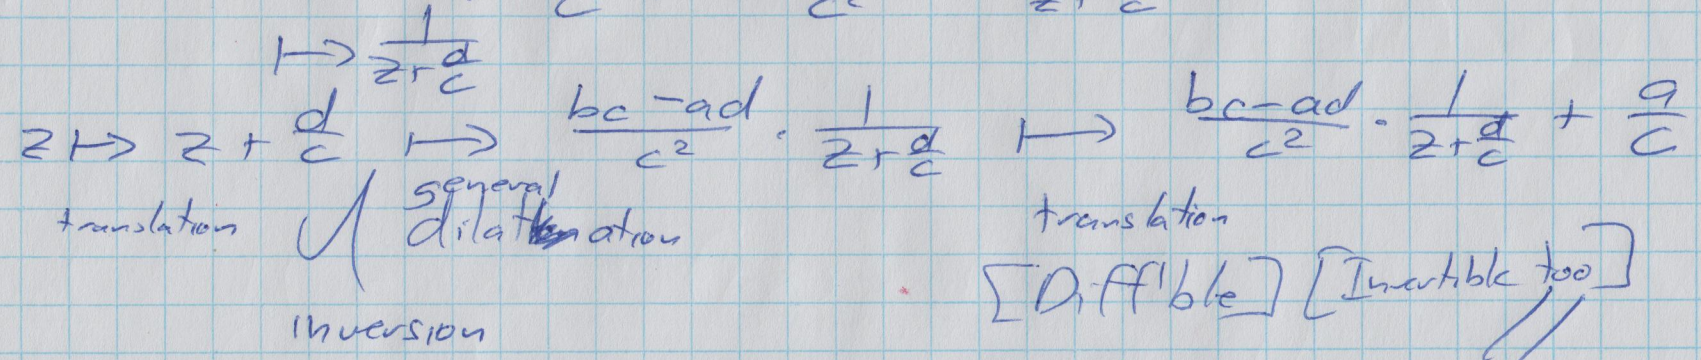 ↦ 1/(z+d/c)
z ↦ z + d/c ↦ (bc-ad)/c² · 1/(z+d/c) ↦ (bc-ad)/c² · 1/(z+d/c) + a/c
translation general dilation translation
inversion [Diff'ble] [Invertible too]